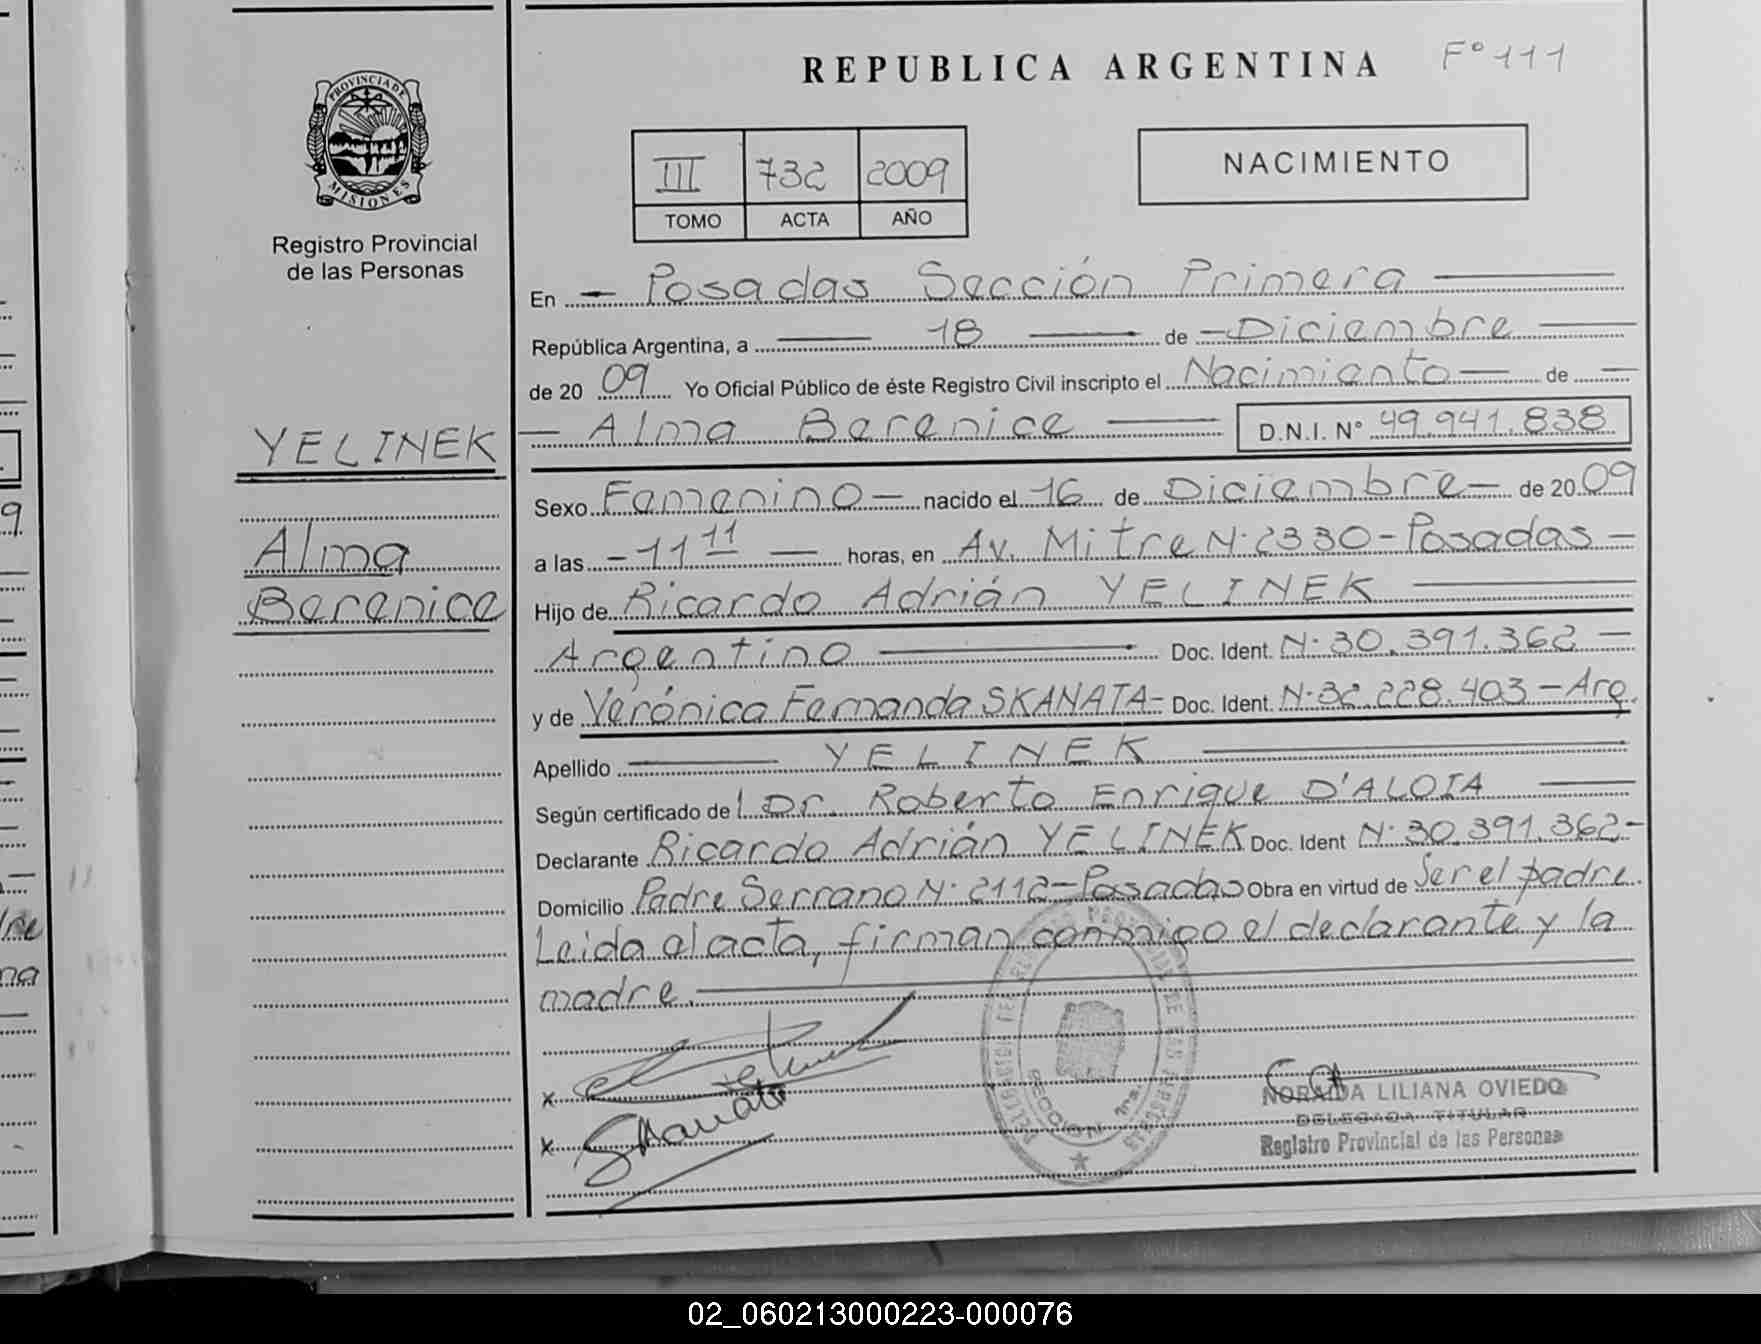 REPUBLICA ARGENTINA Fº 111
PROVINCIA DE
MISIONES
Registro Provincial
de las Personas
III 732 2009
TOMO ACTA AÑO
NACIMIENTO
En - Posadas Sección Primera
República Argentina, a 18 de - Diciembre
de 20 09 Yo Oficial Público de éste Registro Civil inscripto el Nacimiento de
- Alma Berenice D.N.I. N° 49.941.838
YELINEK
Alma
Berenice
Sexo Femenino - nacido el 16 de Diciembre - de 20 09
a las - 11 11 - horas, en Av. Mitre N· 2330 - Posadas -
Hijo de Ricardo Adrián YELINEK
Argentino Doc. Ident. N· 30.391.362 -
y de Verónica Fernanda SKANATA - Doc. Ident. N· 32.228.403 - Arg.
Apellido YELINEK
Según certificado del Dr. Roberto Enrique D'ALOIA
Declarante Ricardo Adrián YELINEK Doc. Ident N· 30.391.362 -
Domicilio Padre Serrano N· 2112 - Posadas Obra en virtud de Ser el padre.
Leida el acta, firman conmigo el declarante y la
madre.
x
x Skanata
SECCION 1ra.
NORAIDA LILIANA OVIEDO
DELEGADA TITULAR
Registro Provincial de las Personas
02_060213000223-000076